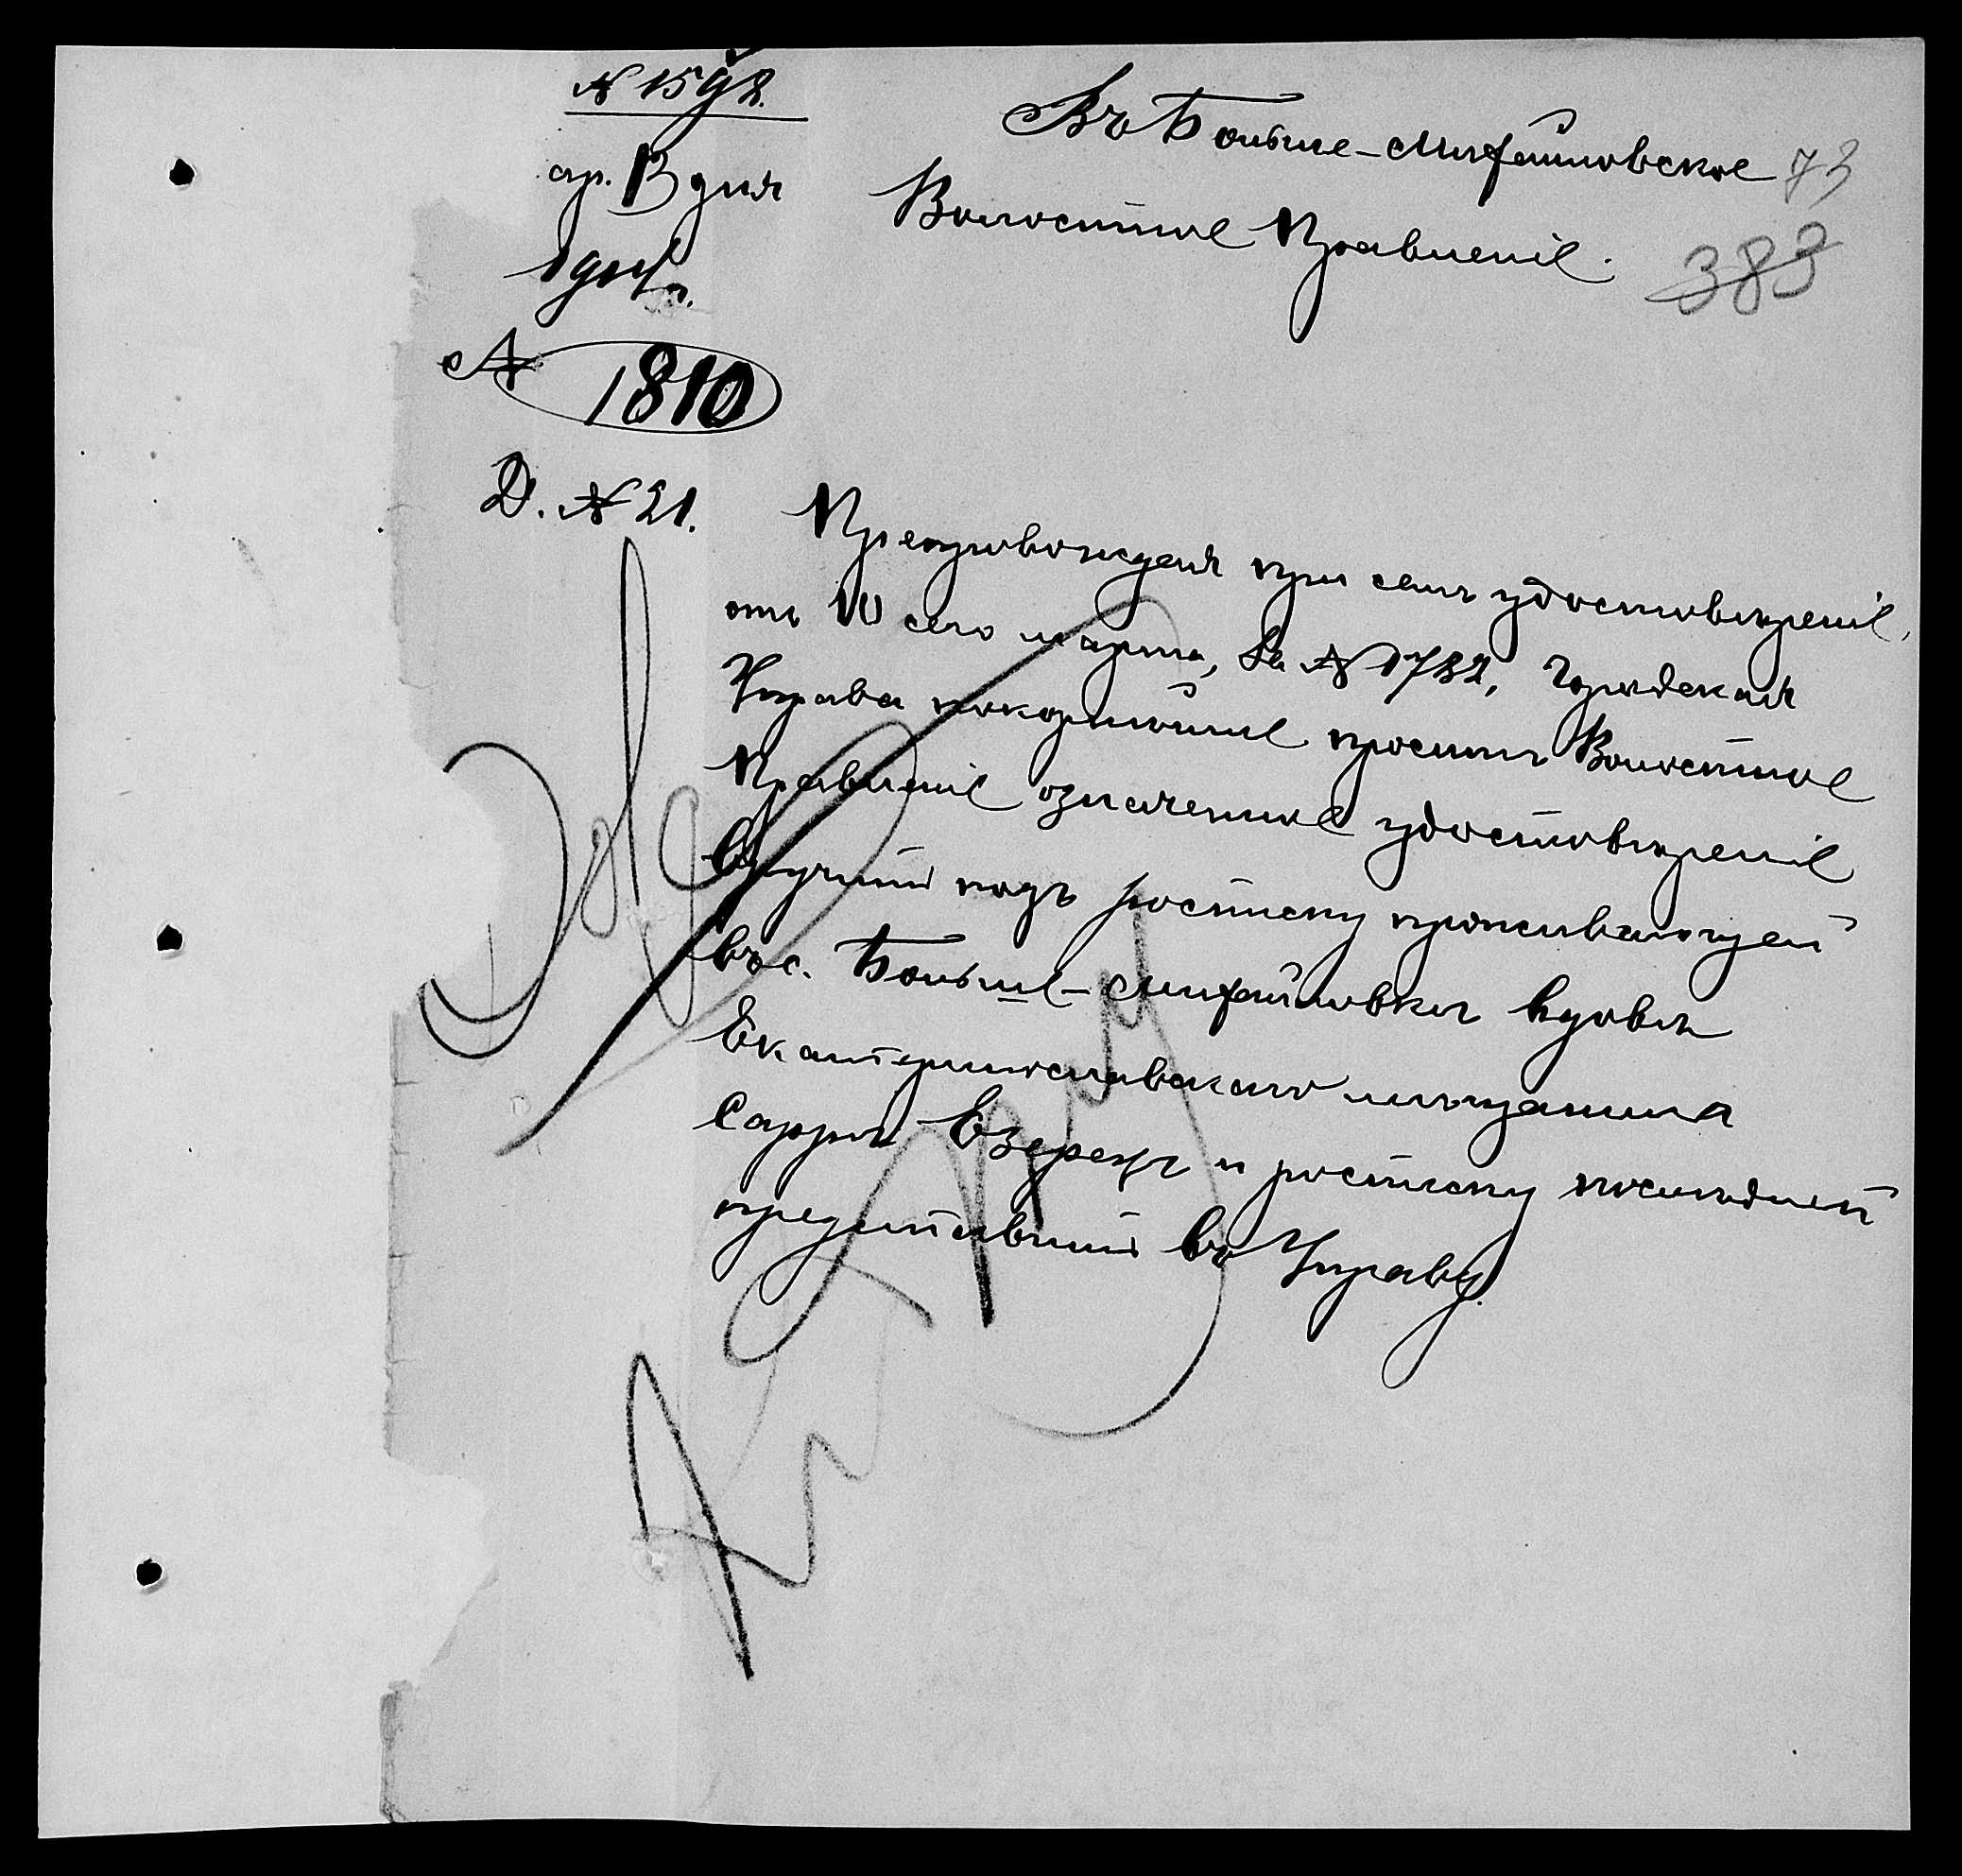 № 1592.
Въ Больше-Михайловское
73
мр. 13 дня
Волостное Правленіе.
383
№ 1810
Д. № 21.
Препровождая при семъ удостовѣреніе
отъ 10 сего марта, за № 1782, Городская
Управа покорнѣйше проситъ Волостное
Правленіе означенное удостовѣреніе
вручить подъ росписку проживающей
въ с. Больше-Михайловкѣ вдовѣ
Екатеринославскаго мѣщанина
Саррѣ Езерехъ и росписку послѣдней
представить въ Управу.